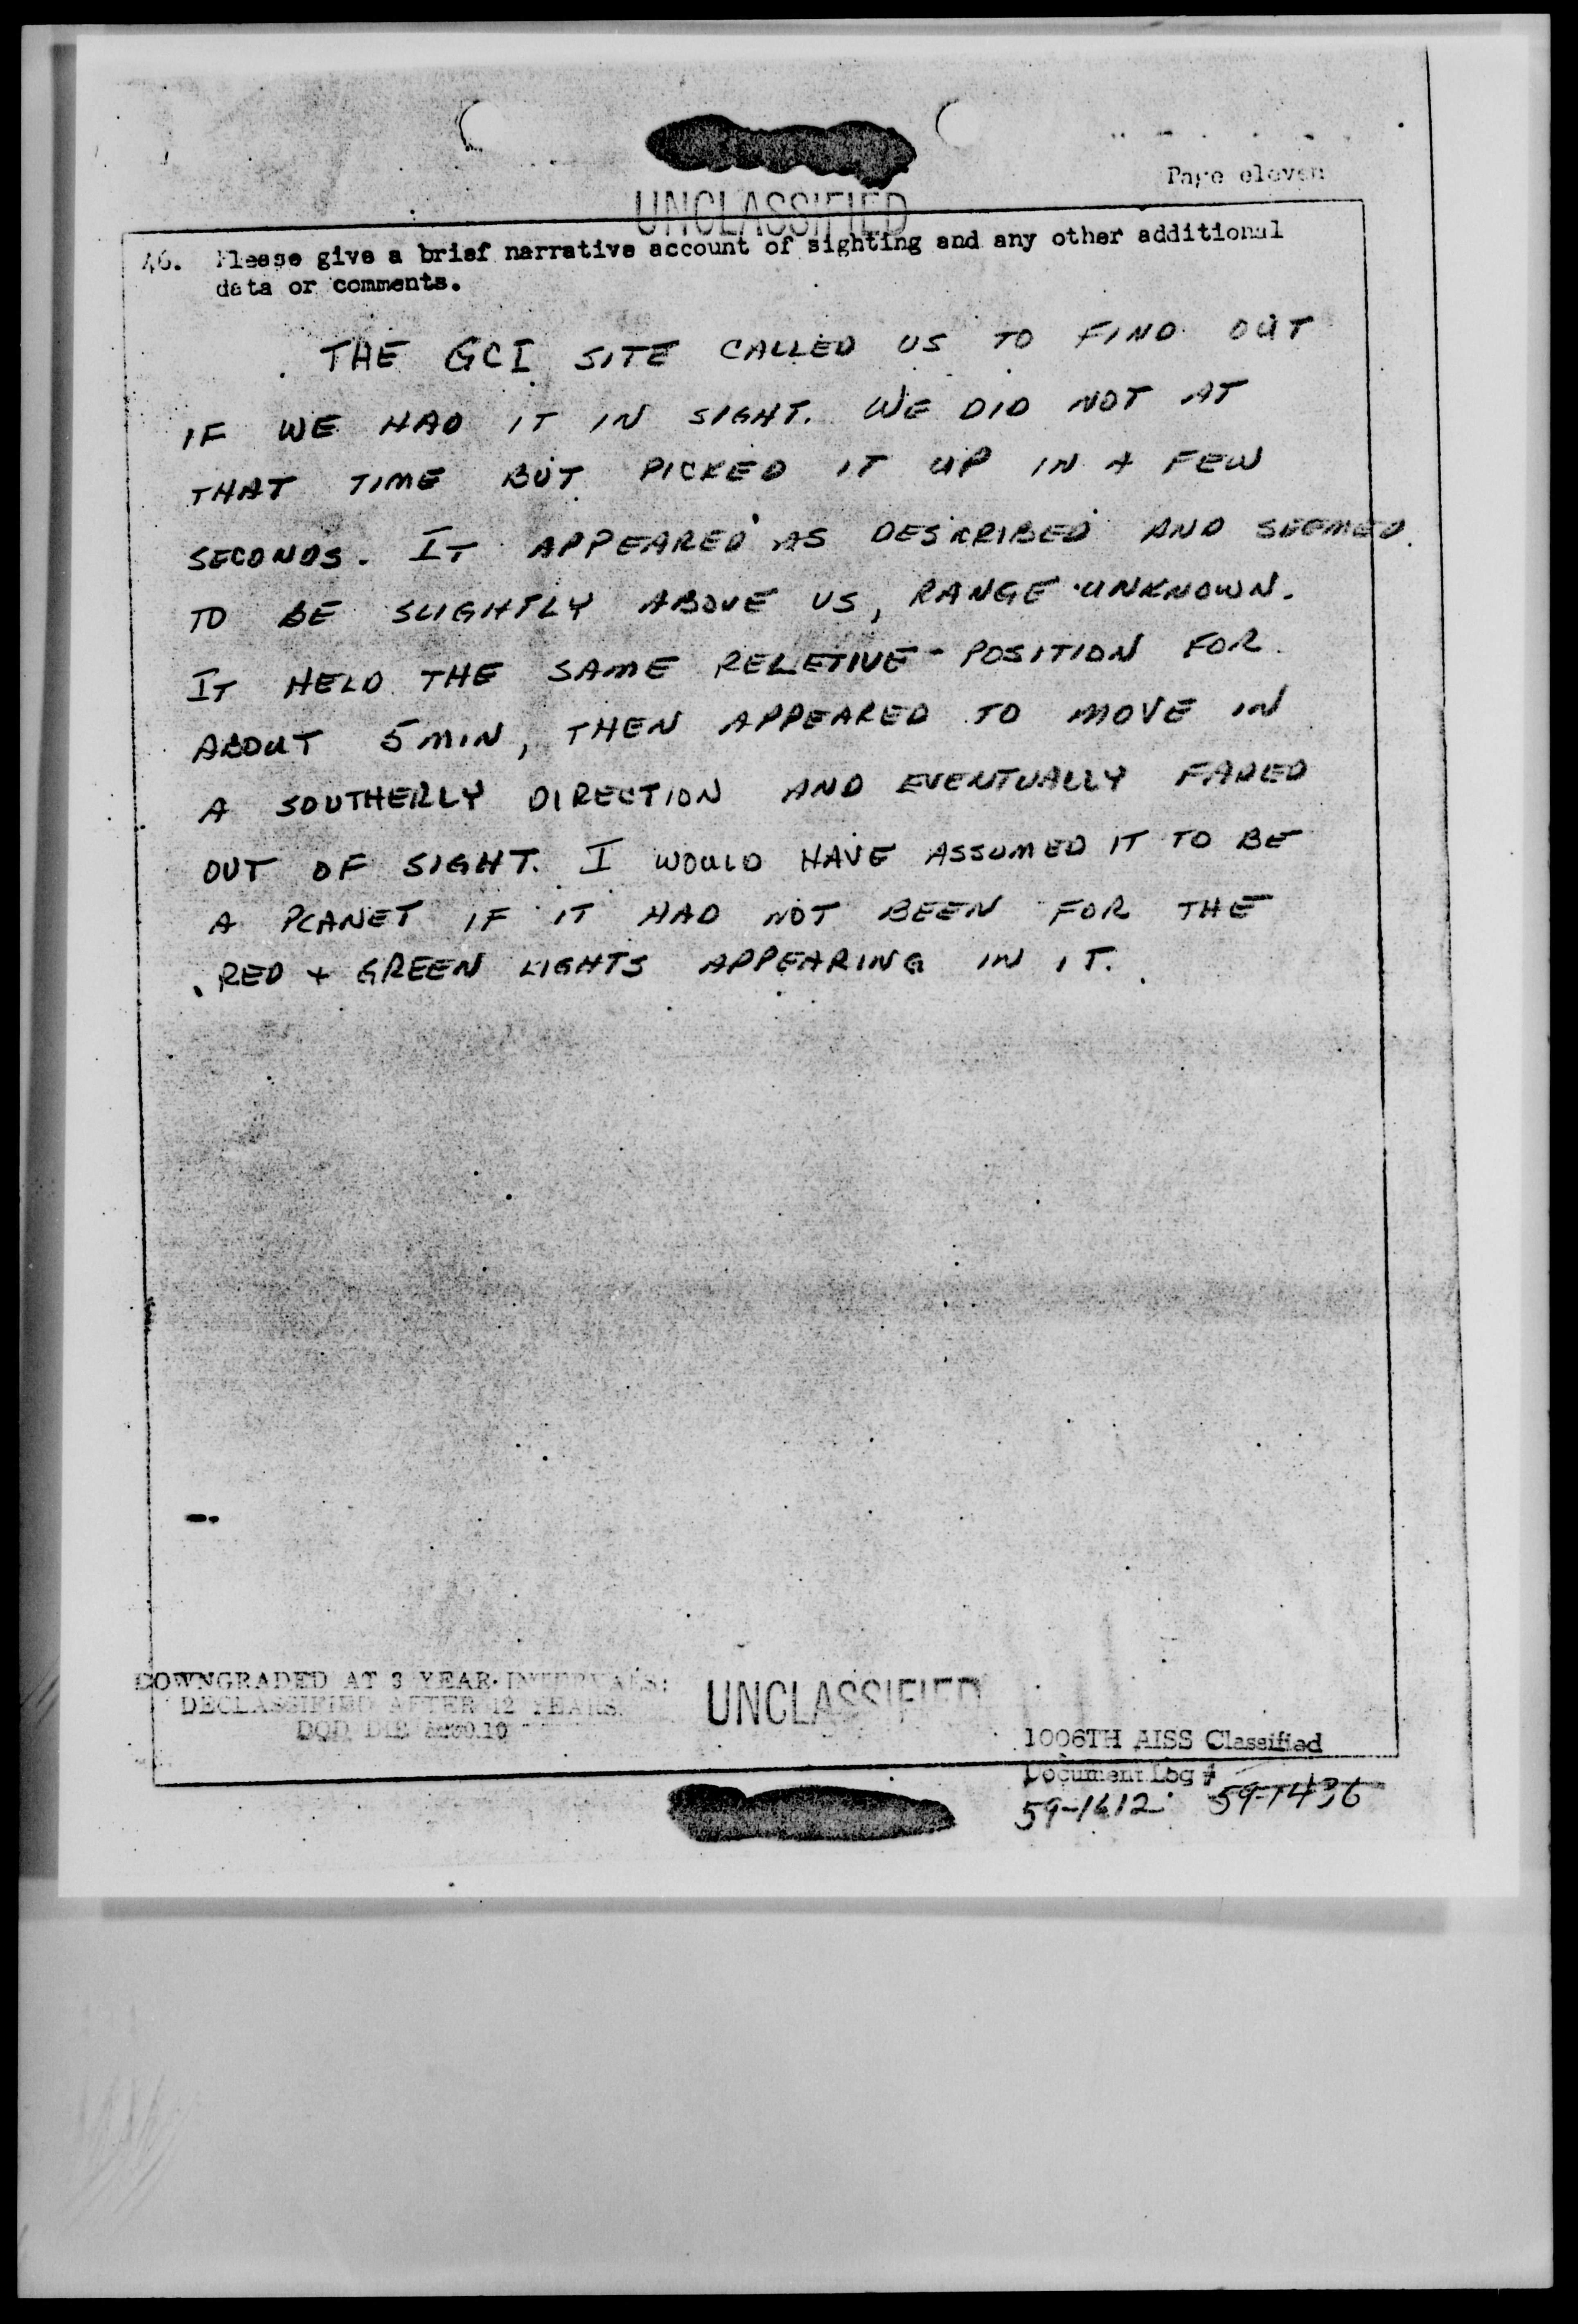 Page eleven
UNCLASSIFIED
46. Please give a brief narrative account of sighting and any other additional
data or comments.
THE GCI SITE CALLED US TO FIND OUT
IF WE HAD IT IN SIGHT. WE DID NOT AT
THAT TIME BUT PICKED IT UP IN A FEW
SECONDS. IT APPEARED AS DESCRIBED AND SEEMED
TO BE SLIGHTLY ABOVE US, RANGE UNKNOWN.
IT HELD THE SAME RELETIVE POSITION FOR
ABOUT 5 MIN, THEN APPEARED TO MOVE IN
A SOUTHERLY DIRECTION AND EVENTUALLY FADED
OUT OF SIGHT. I WOULD HAVE ASSUMED IT TO BE
A PLANET IF IT HAD NOT BEEN FOR THE
RED + GREEN LIGHTS APPEARING IN IT.
DOWNGRADED AT 3 YEAR INTERVALS:
DECLASSIFIED AFTER 12 YEARS.
DOD DIR 5200.10
UNCLASSIFIED
1006TH AISS Classified
Document Log #
59-1612 59-1436